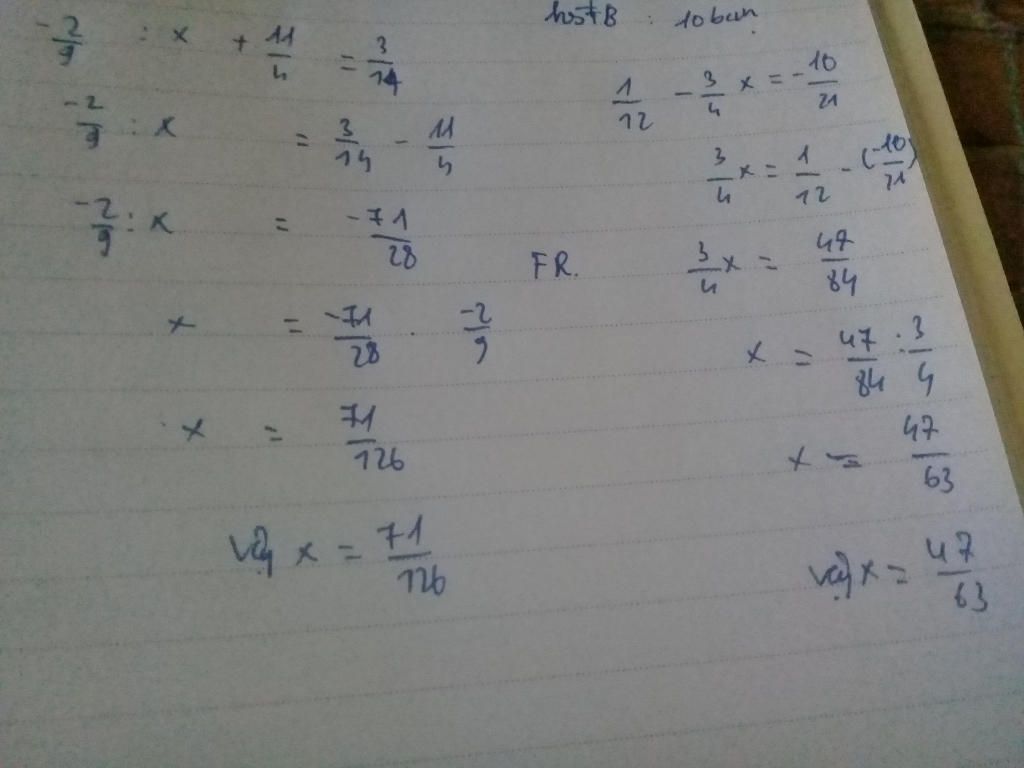 -2/9 : x + 11/4 = 3/14
-2/9 : x = 3/14 - 11/4
-2/9 : x = -71/28
x = -71/28 . -2/9
x = 71/126
Vậy x = 71/126
FR.
: 10 bạn.
1/12 - 3/4 x = -10/21
3/4 x = 1/12 - (-10/21)
3/4 x = 47/84
x = 47/84 : 3/4
x = 47/63
Vậy x = 47/63